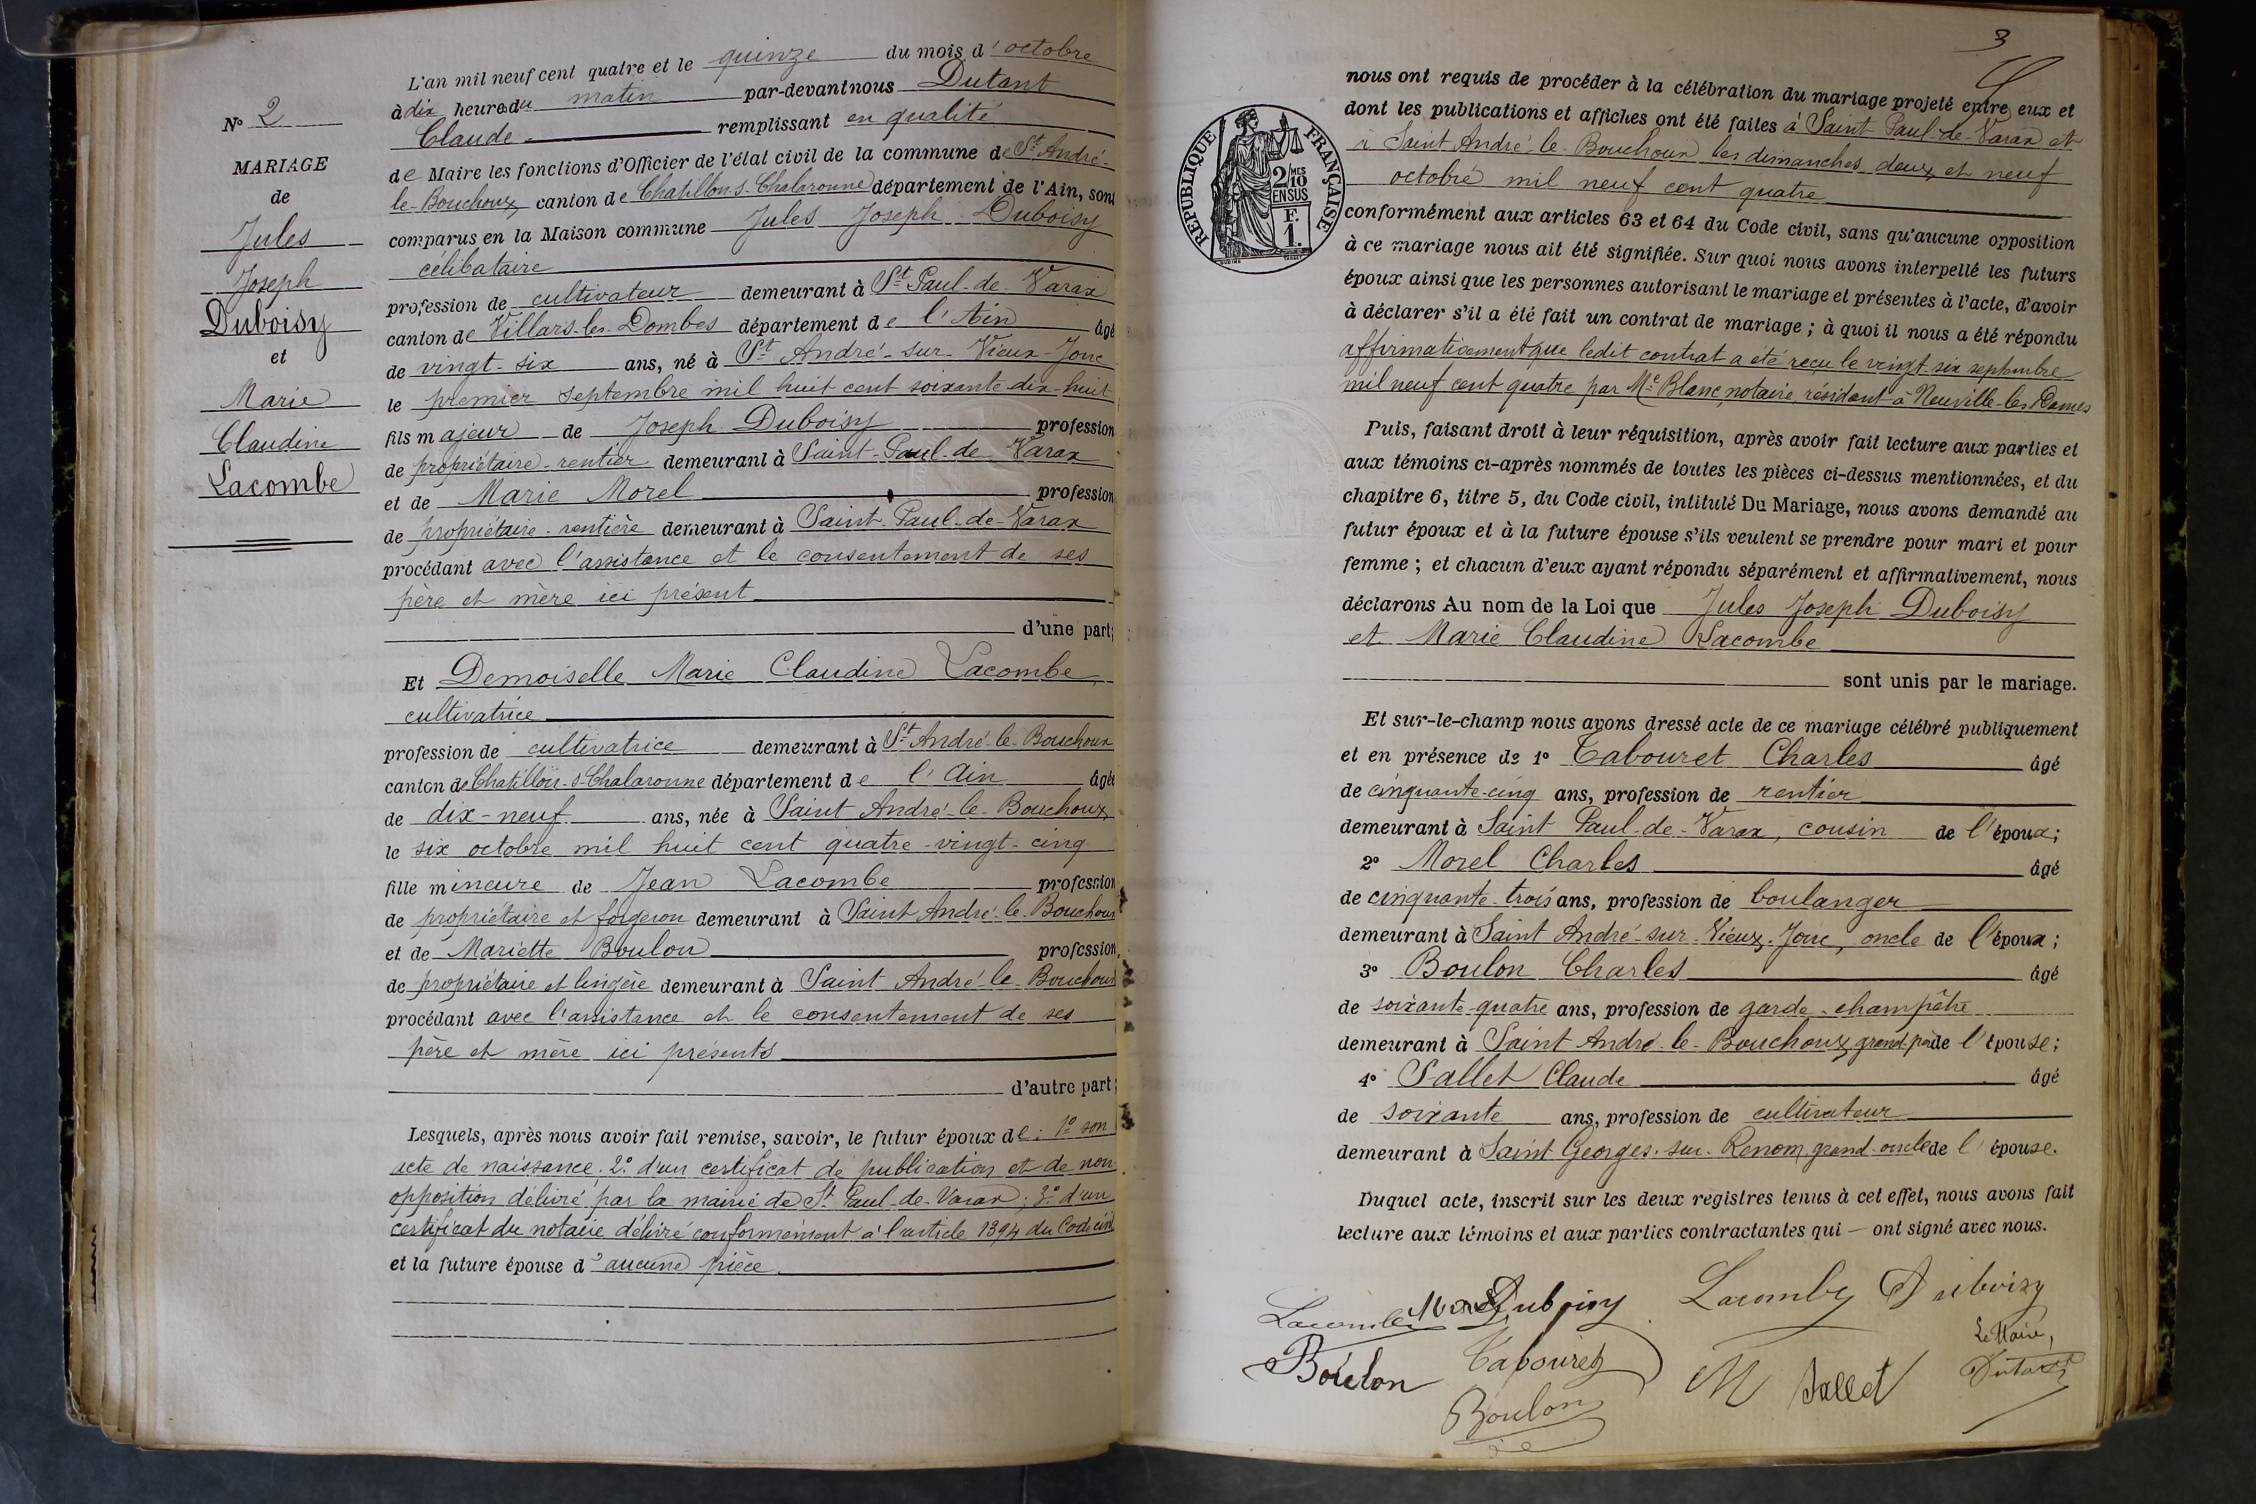 N° 2
MARIAGE
de
Jules
Joseph
Duboisy
et
Marie
Claudine
Lacombe
L'an mil neuf cent quatre et le quinze du mois d'octobre
à dix heures du matin par-devant nous Dutant
Claude remplissant en qualité
de Maire les fonctions d'Officier de l'état civil de la commune de St André-
le-Bouchoux, canton de Chatillon-s-Chalaronne département de l'Ain, sont
comparus en la Maison commune Jules Joseph Duboisy
célibataire
profession de cultivateur demeurant à St Paul-de-Varax
canton de Villars-les-Dombes département de l'Ain âgé
de vingt-six ans, né à St André-sur-Vieux-Jonc
le premier septembre mil huit cent soixante dix-huit
fils majeur de Joseph Duboisy profession
de propriétaire-rentier demeurant à Saint-Paul-de-Varax
et de Marie Morel profession
de propriétaire-rentière demeurant à Saint-Paul-de-Varax
procédant avec l'assistance et le consentement de ses
père et mère ici présent
d'une part;
Et Demoiselle Marie Claudine Lacombe,
cultivatrice
profession de cultivatrice demeurant à St André-le-Bouchoux
canton de Chatillon-s-Chalaronne département de l'Ain âgée
de dix-neuf ans, née à Saint André-le-Bouchoux
le six octobre mil huit cent quatre-vingt-cinq
fille mineure de Jean Lacombe profession
de propriétaire et forgeron demeurant à Saint André-le-Bouchoux
et de Mariette Boulon profession
de propriétaire et lingère demeurant à Saint André-le-Bouchoux
procédant avec l'assistance et le consentement de ses
père et mère ici présents
d'autre part;
Lesquels, après nous avoir fait remise, savoir, le futur époux de: 1° son
acte de naissance; 2° d'un certificat de publication et de non
opposition délivré par la mairie de St Paul-de-Varax; 3° d'un
certificat du notaire délivré conformément à l'article 1394 du Code civil
et la future épouse d'aucune pièce
3
RÉPUBLIQUE FRANÇAISE
2/10 MES
EN SUS
F.
1.
nous ont requis de procéder à la célébration du mariage projeté entre eux et
dont les publications et affiches ont été faites à Saint-Paul-de-Varax et
à Saint André-le-Bouchoux les dimanches deux et neuf
octobre mil neuf cent quatre
conformément aux articles 63 et 64 du Code civil, sans qu'aucune opposition
à ce mariage nous ait été signifiée. Sur quoi nous avons interpellé les futurs
époux ainsi que les personnes autorisant le mariage et présentes à l'acte, d'avoir
à déclarer s'il a été fait un contrat de mariage; à quoi il nous a été répondu
affirmativement que ledit contrat a été reçu le vingt-six septembre
mil neuf cent quatre par Me Blanc, notaire, résidant à Neuville-les-Dames
Puis, faisant droit à leur réquisition, après avoir fait lecture aux parties et
aux témoins ci-après nommés de toutes les pièces ci-dessus mentionnées, et du
chapitre 6, titre 5, du Code civil, intitulé Du Mariage, nous avons demandé au
futur époux et à la future épouse s'ils veulent se prendre pour mari et pour
femme; et chacun d'eux ayant répondu séparément et affirmativement, nous
déclarons Au nom de la Loi que Jules Joseph Duboisy
et Marie Claudine Lacombe
sont unis par le mariage.
Et sur-le-champ nous avons dressé acte de ce mariage célébré publiquement
et en présence de 1° Tabouret Charles âgé
de cinquante-cinq ans, profession de rentier
demeurant à Saint Paul-de-Varax, cousin de l'époux;
2° Morel Charles âgé
de cinquante-trois ans, profession de boulanger
demeurant à Saint André-sur-Vieux-Jonc, oncle de l'époux;
3° Boulon Charles âgé
de soixante-quatre ans, profession de garde-champêtre
demeurant à Saint André-le-Bouchoux, grand-père de l'épouse;
4° Sallet Claude âgé
de soixante ans, profession de cultivateur
demeurant à Saint Georges-sur-Renom, grand-oncle de l'épouse.
Duquel acte, inscrit sur les deux registres tenus à cet effet, nous avons fait
lecture aux témoins et aux parties contractantes qui — ont signé avec nous.
Lacombe Duboisy Lacombe Duboisy
Boulon Tabouret M Sallet Le Maire,
Dutant
Boulon